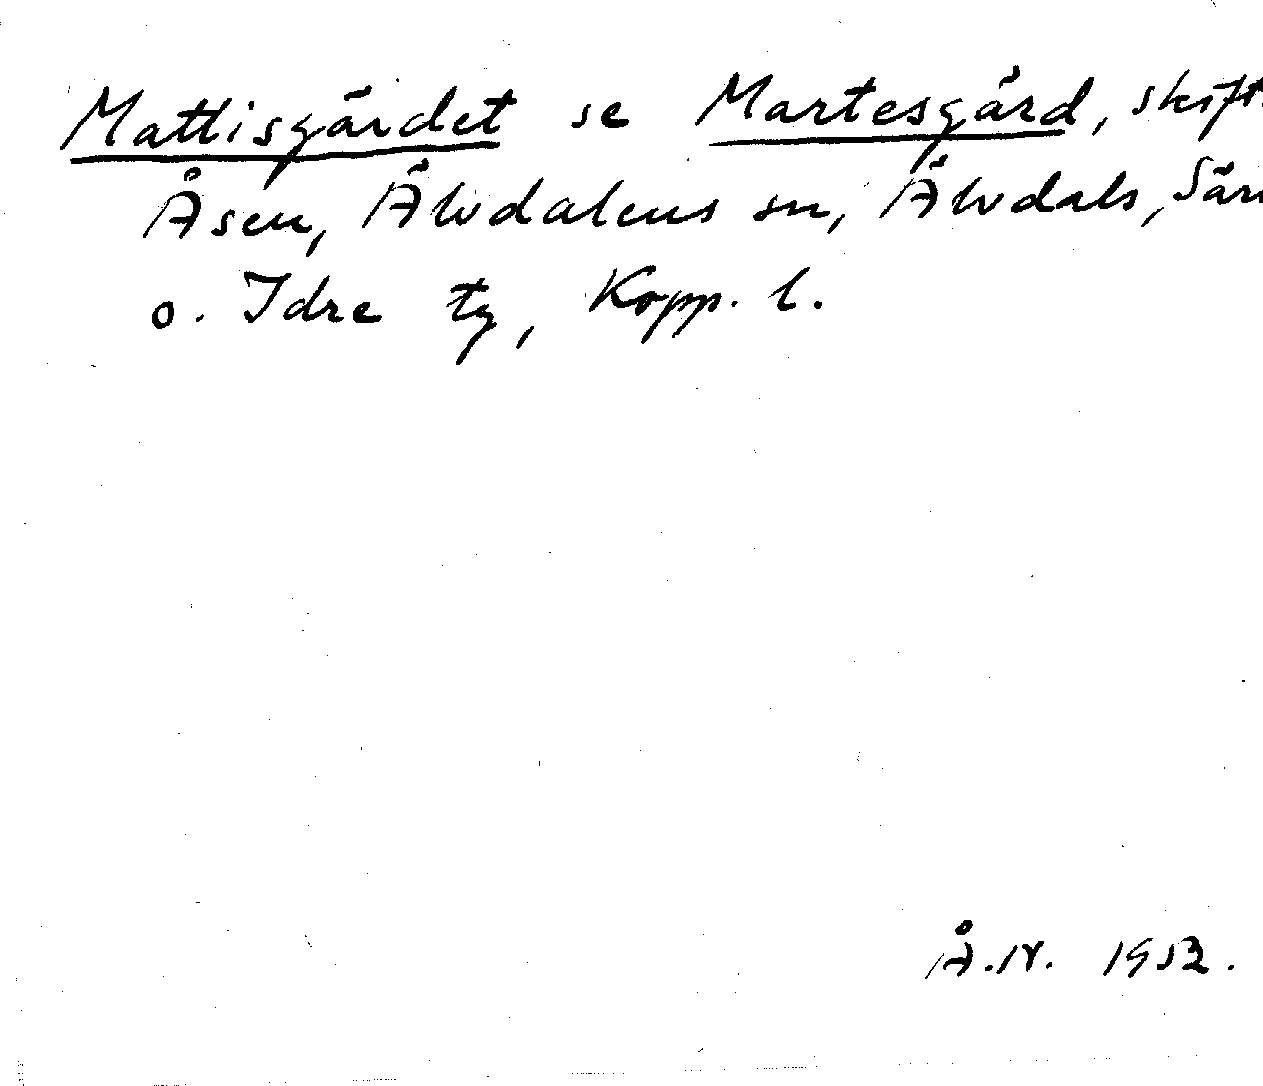 Mattisgärdet se Martesgärd, skift.
Åsen, Älvdalens sn, Älvdals, Särn
o. Idre tg, Kopp. l.
Å.N. 1952.